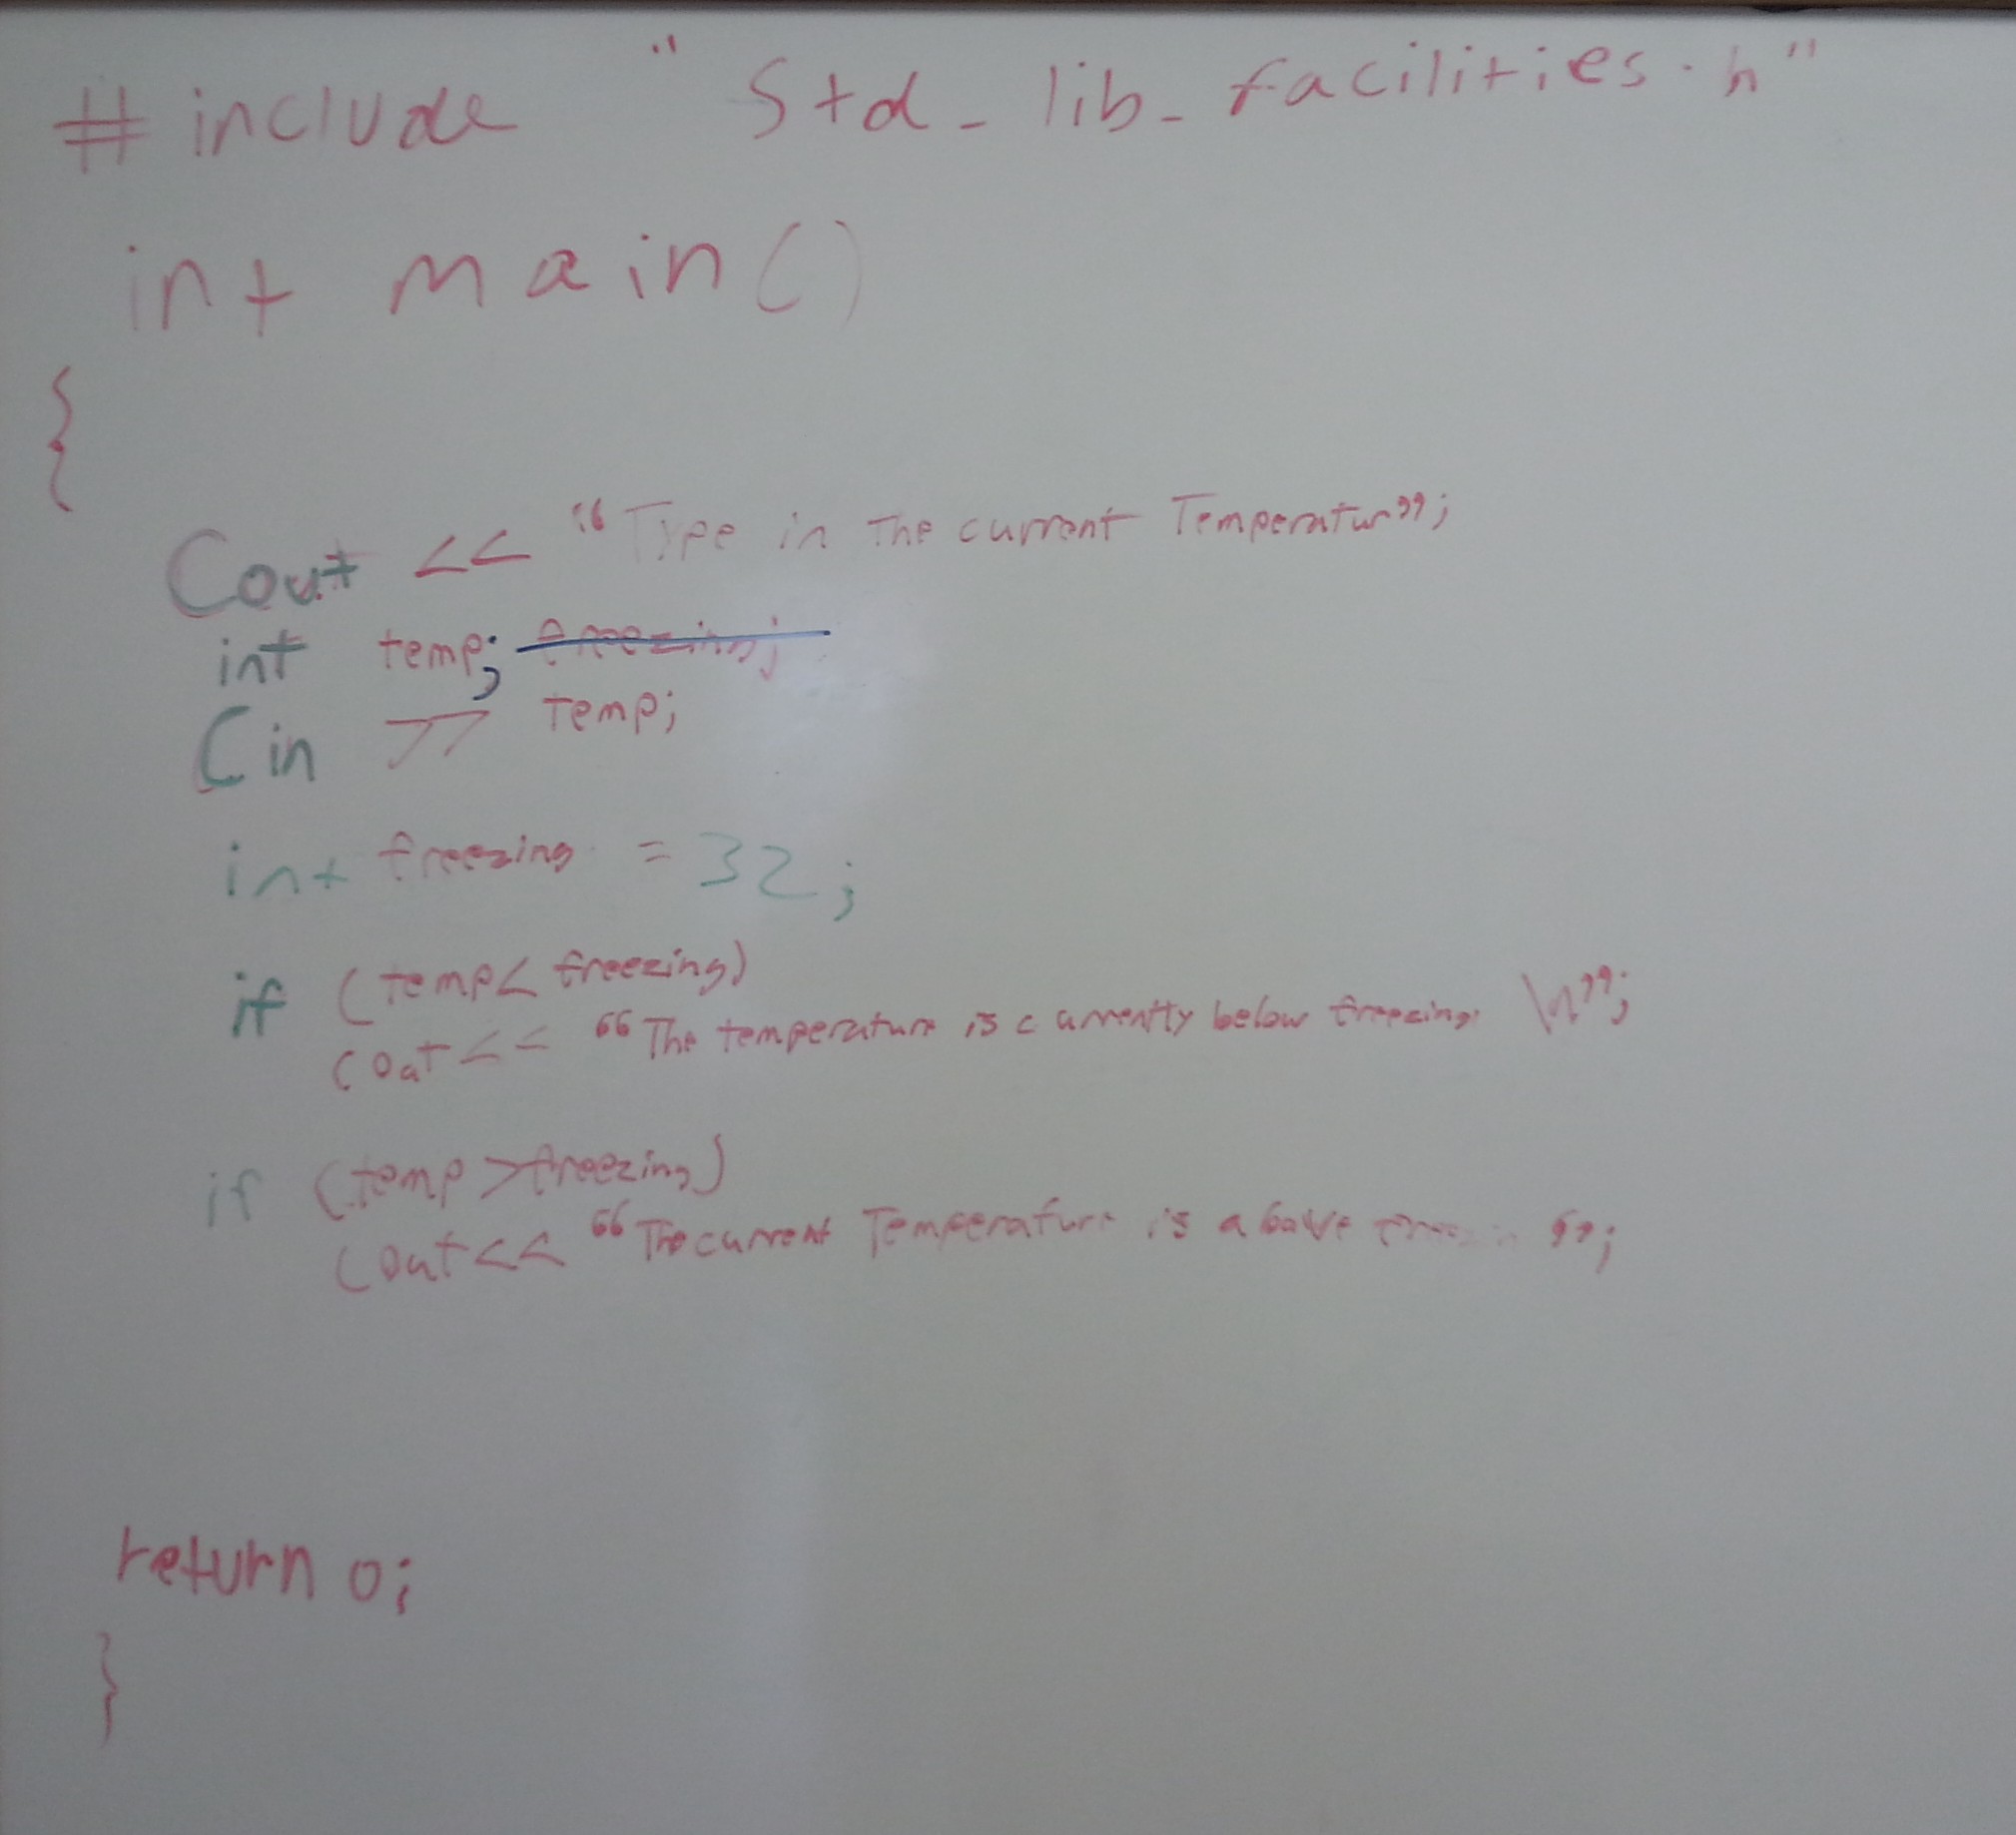 #include "Std_lib_facilities.h"
int main()
{
Cout << "Type in The current Temperatur";
int temp; freezing;
Cin >> Temp;
int freezing = 32;
if (temp< freezing)
cout << "The temperature is currently below freezing. \n";
if (temp >freezing)
cout << "The current Temperature is above ";
return 0;
}